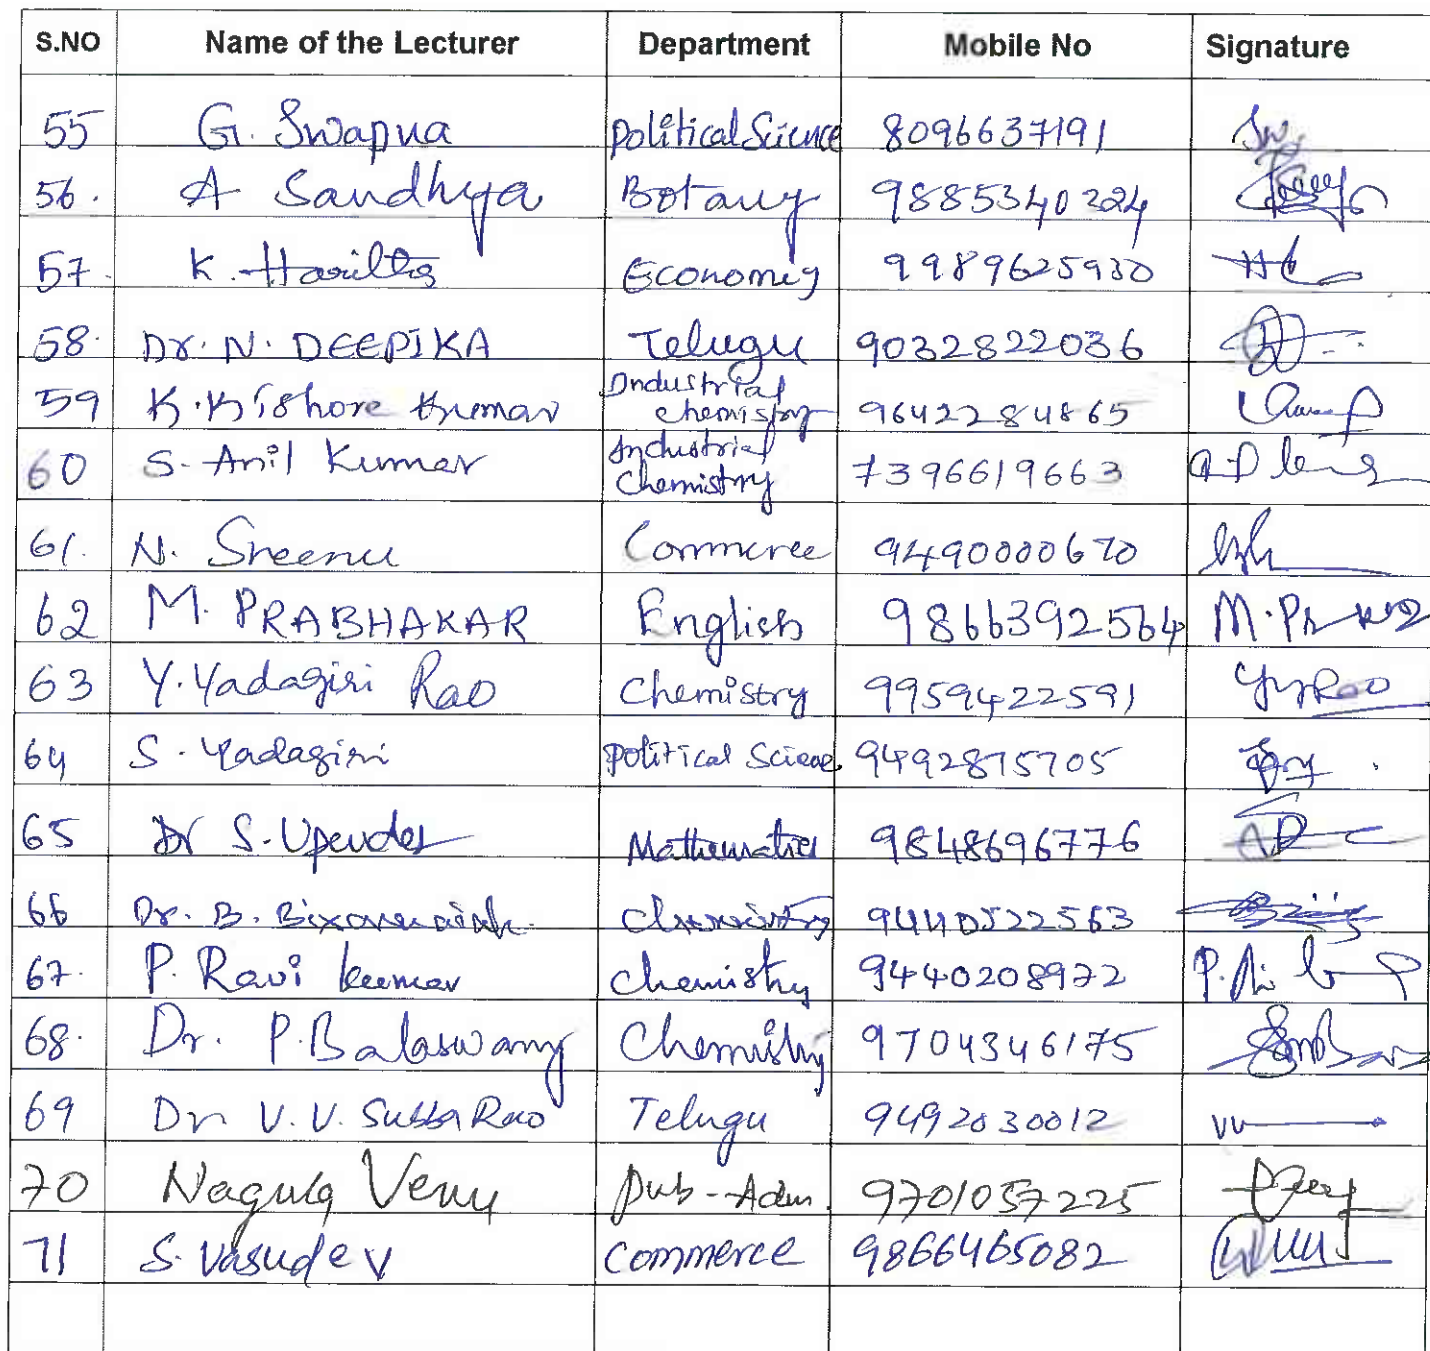 S.NO Name of the Lecturer Department Mobile No Signature
55 G. Swapna Political Science 8096637191
56. A Sandhya Botany 9885340324
57. K. Haritha Economics 9989625930
58. Dr. N. DEEPIKA Telugu 9032822036
59 K. Kishore Kumar Industrial chemistry 9642284865
60 S. Anil Kumar Industrial Chemistry 7396619663
61. N. Sreenu Commerce 9490000670
62 M. PRABHAKAR English 9866392564
63 Y. Yadagiri Rao Chemistry 9959422591
64 S. Yadagiri Political Science 9492875705
65 Dr S. Upender Mathematics 9848696776
66 Dr. B. Chemistry 9440522563
67. P. Ravi kumar Chemistry 9440208972
68. Dr. P. Balaswamy Chemistry 9704346175
69 Dr V.V. Subba Rao Telugu 9492030012
70 Nagula Venu Pub-Adm. 9701057225
71 S. Vasudev Commerce 9866465082